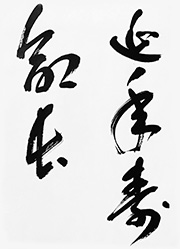 延年壽
命長